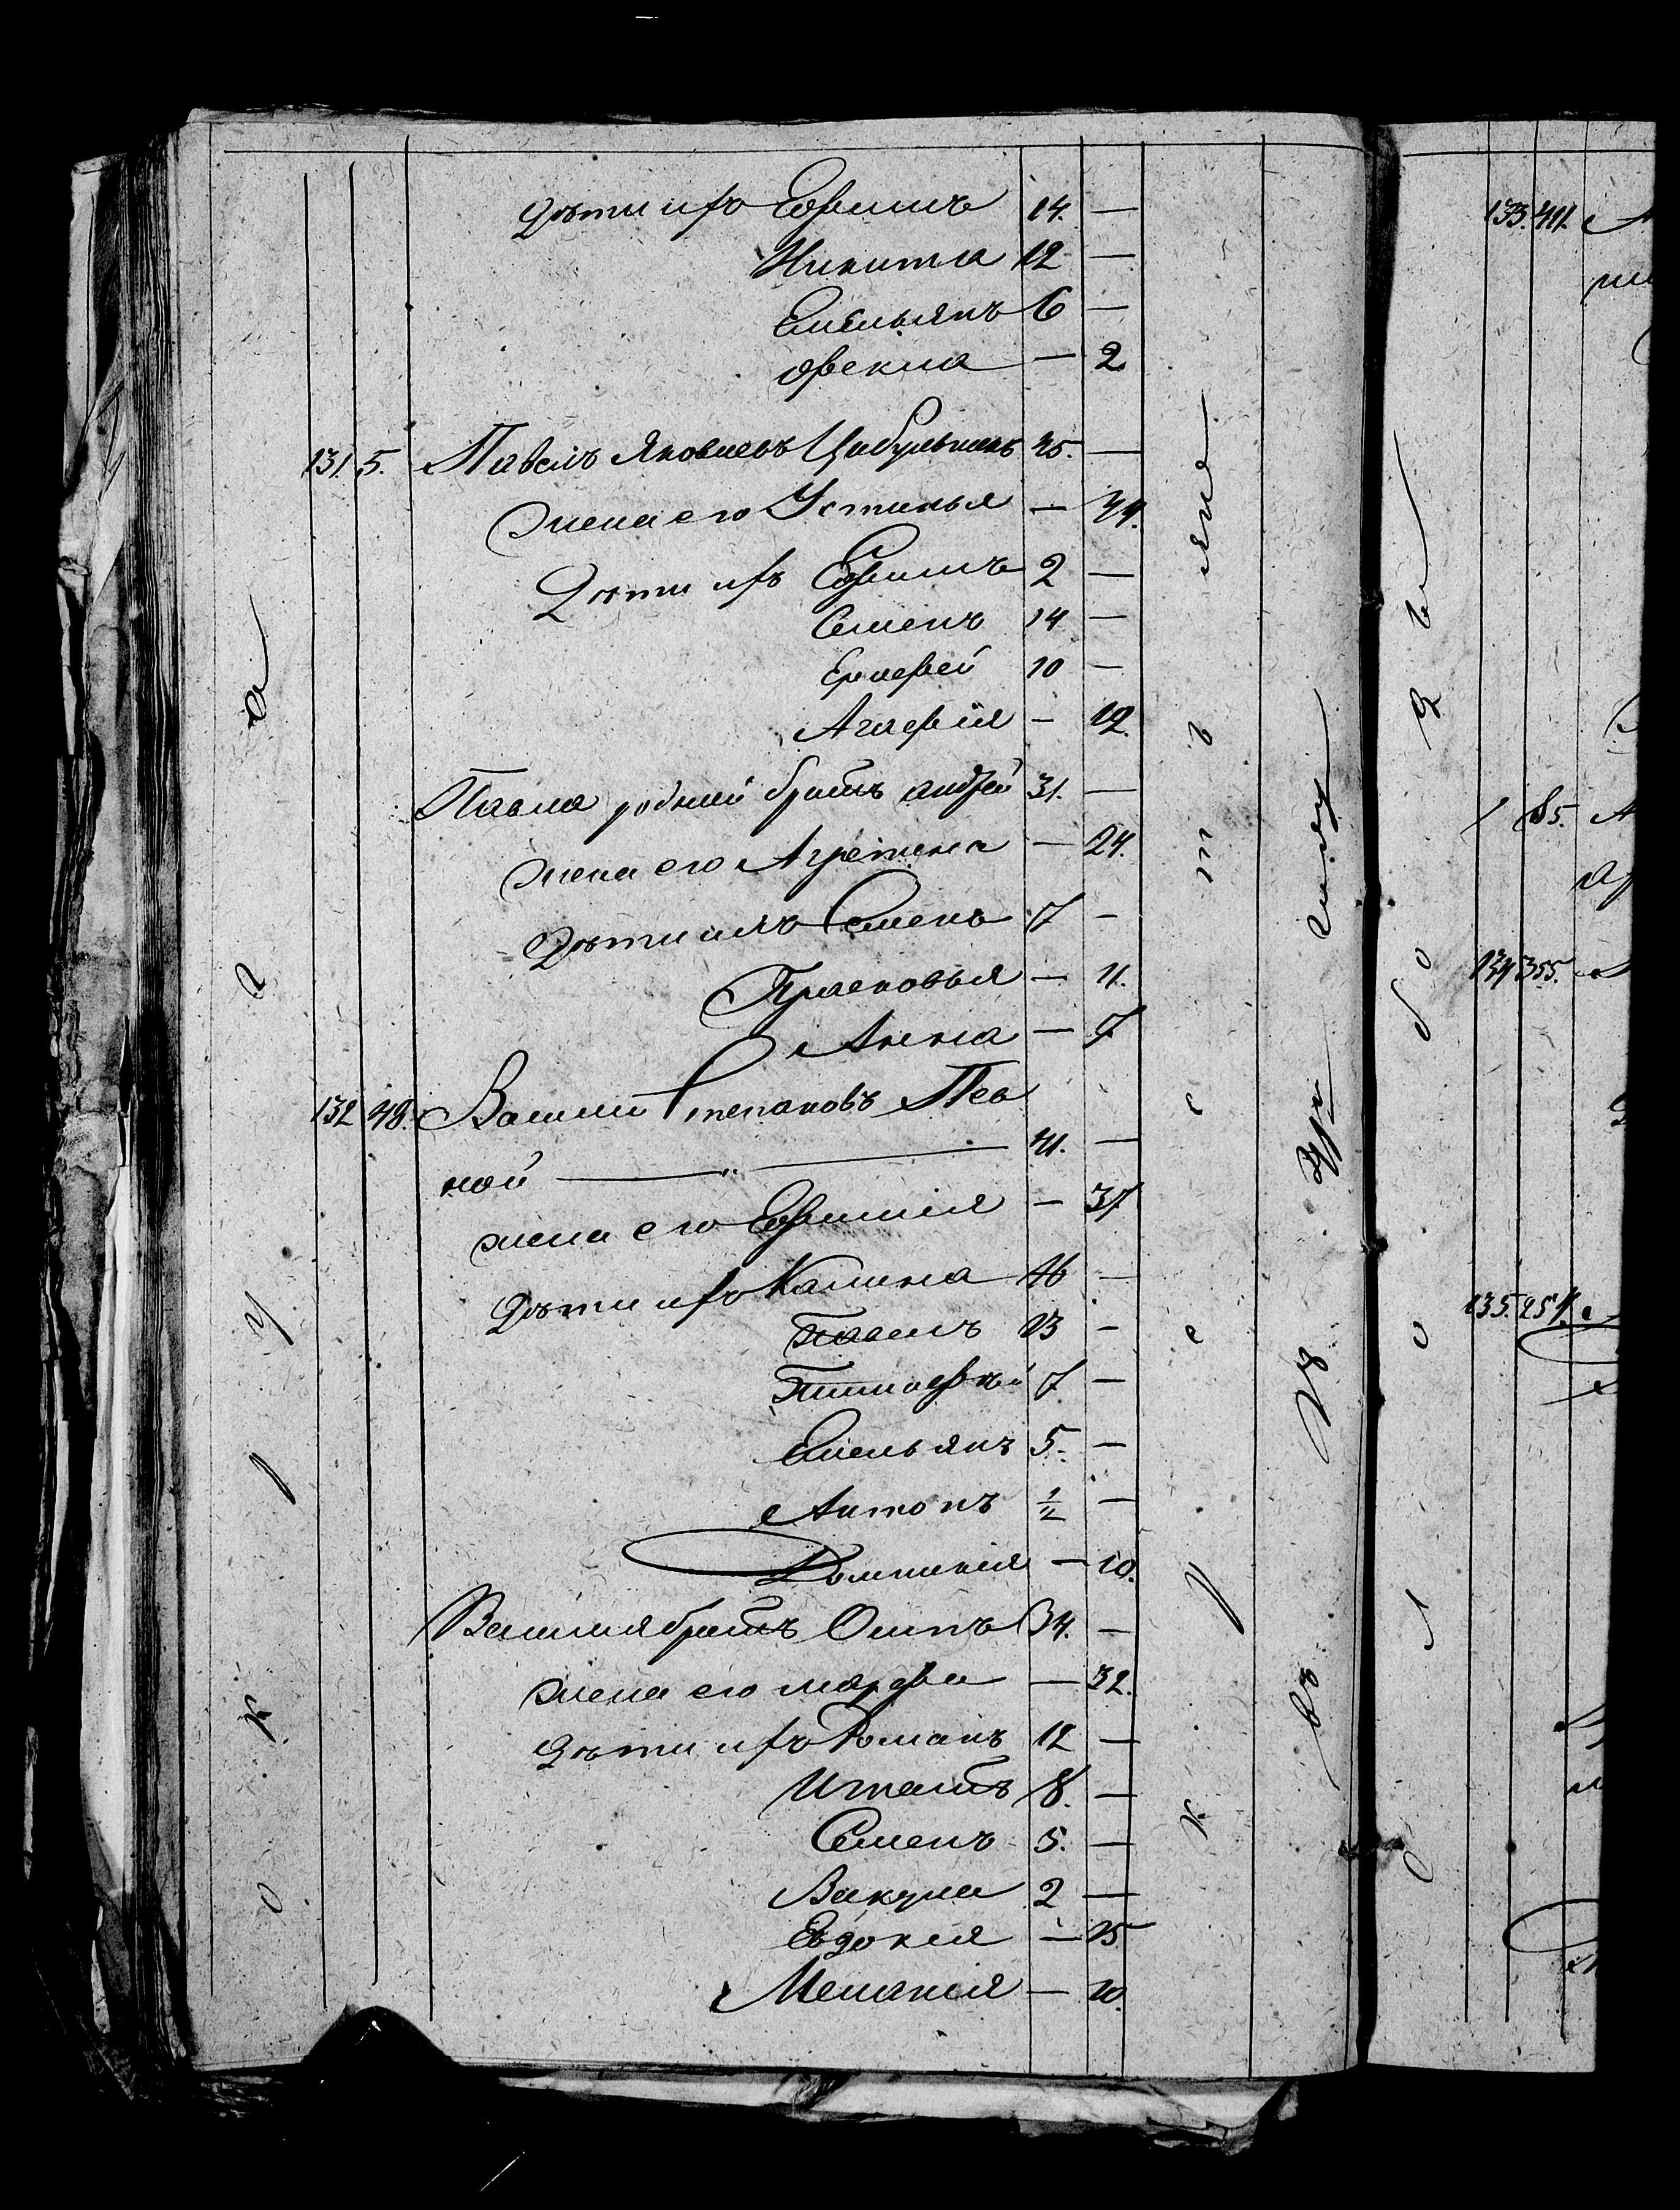 дѣти ихъ Ефимъ 14. —
Никита 12 —
Емельянъ 6 —
Фекла — 2
131. 5. Павелъ Яковлевъ Цыбульникъ 35. —
жена его Устинья — 34.
Дѣти ихъ Ефимъ 2 —
Семенъ 14 —
Ерофей 10 —
Агафія — 12.
Павла родной братъ андрей 31. —
жена его Агрипина — 24.
Дѣти ихъ Семенъ 7 —
Прасковья — 11.
Анна — 7
132 48. Василій Степановъ Пев
ной — „ — 41. —
жена его Ефимія — 37
Дѣти ихъ Калина 16 —
Павелъ 13 —
Тимофѣй 7 —
Емельянъ 5. —
Антонъ 1/2 —
Домникія — 10.
Василія братъ Осипъ 34. —
жена его марфа — 32.
дѣти ихъ Романъ 12 —
Игнатъ 8. —
Семенъ 5. —
Вакула 2 —
Евдокія — 15
Меланія — 10.
о к р у г а
к р е с т ь яне
въ
133. 411.
85.
134 355.
135. 254.
с л о б о д ы